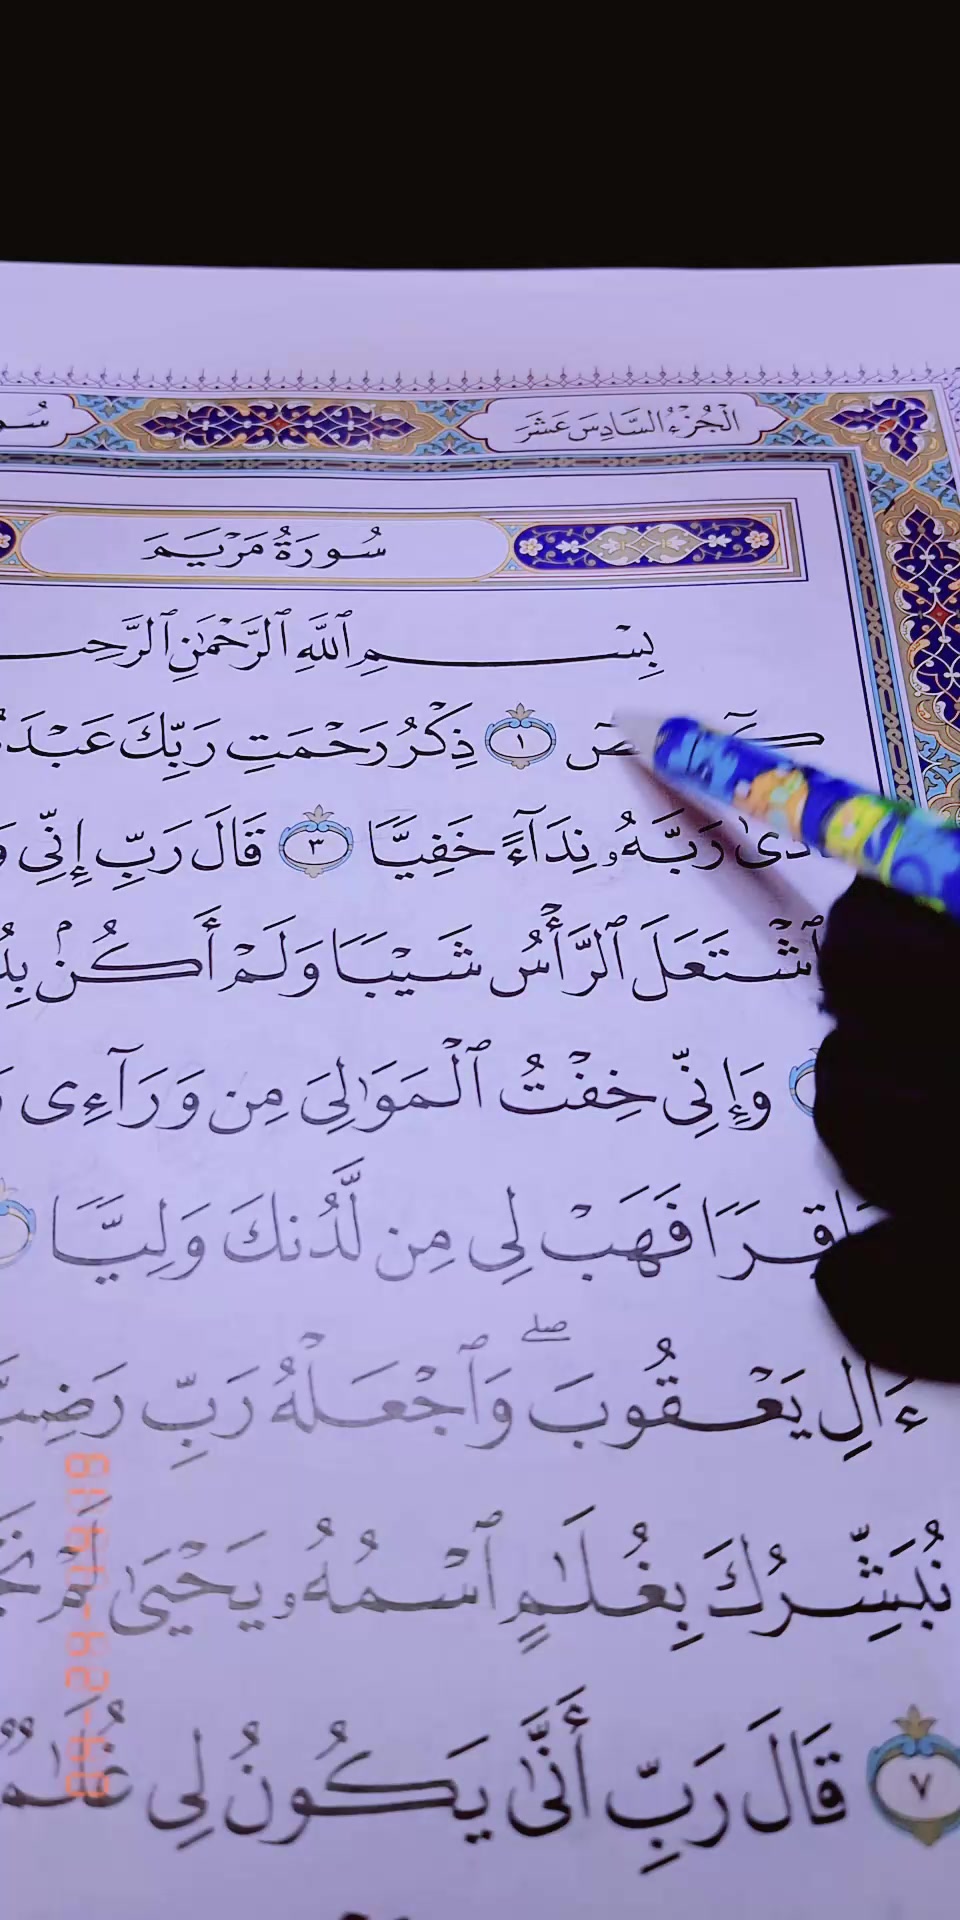 الجُزْءُ السَّادِسَ عَشَرَ
سُورَةُ مَرْيَمَ
بِسْمِ ٱللَّهِ ٱلرَّحْمَٰنِ
ذِكْرُ رَحْمَتِ رَبِّكَ ١
رَبَّهُۥ نِدَآءً خَفِيًّا ٣ قَالَ رَبِّ إِنِّى
ٱشْتَعَلَ ٱلرَّأْسُ شَيْبًا وَلَمْ أَكُنۢ
وَإِنِّى خِفْتُ ٱلْمَوَٰلِىَ مِن وَرَآءِى
فَهَبْ لِى مِن لَّدُنكَ وَلِيًّا
ءَالِ يَعْقُوبَ ۖ وَٱجْعَلْهُ رَبِّ
نُبَشِّرُكَ بِغُلَٰمٍ ٱسْمُهُۥ يَحْيَىٰ لَمْ
٧ قَالَ رَبِّ أَنَّىٰ يَكُونُ لِى غُلَٰمٌ